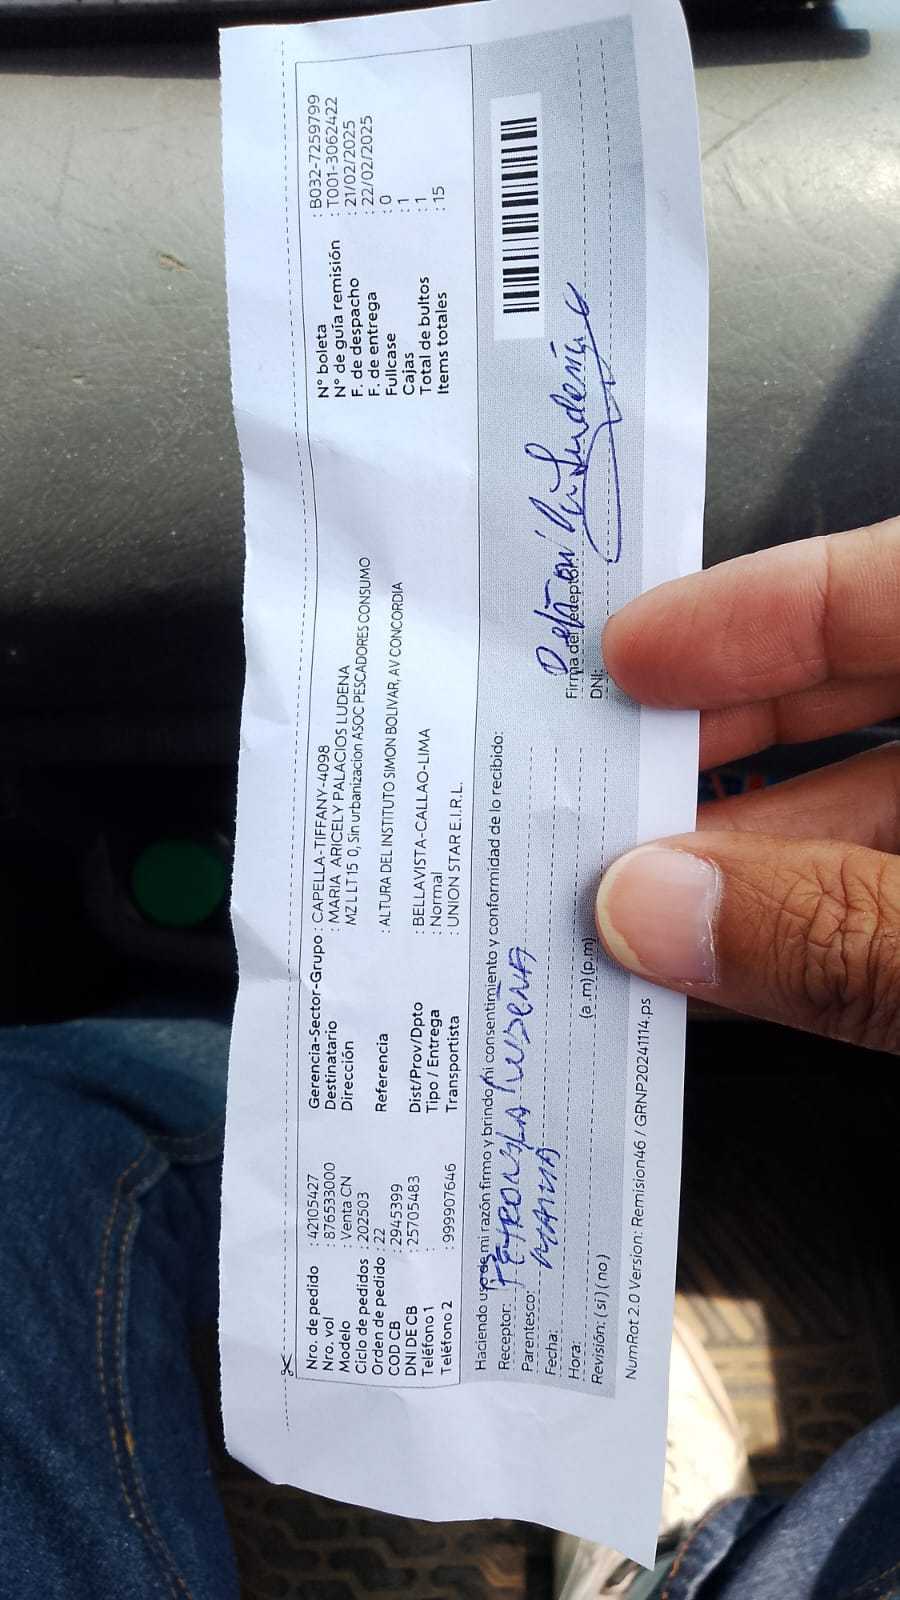 Nro. de pedido : 42105427
Nro. vol : 876533000
Modelo : Venta CN
Ciclo de pedidos : 202503
Orden de pedido : 22
COD CB : 2945399
DNI DE CB : 25705483
Teléfono 1 :
Teléfono 2 : 999907646
Gerencia-Sector-Grupo : CAPELLA-TIFFANY-4098
Destinatario : MARIA ARICELY PALACIOS LUDENA
Dirección MZ L LT15 0, Sin urbanizacion ASOC PESCADORES CONSUMO
Referencia : ALTURA DEL INSTITUTO SIMON BOLIVAR, AV CONCORDIA
Dist/Prov/Dpto : BELLAVISTA-CALLAO-LIMA
Tipo / Entrega : Normal
Transportista : UNION STAR E.I.R.L.
N° boleta : B032-7259799
N° de guía remisión : T001-3062422
F. de despacho : 21/02/2025
F. de entrega : 22/02/2025
Fullcase : 0
Cajas : 1
Total de bultos : 1
Items totales : 15
Haciendo uso de mi razón firmo y brindo mi consentimiento y conformidad de lo recibido:
Receptor: PETRONILA LUDEÑA
Parentesco: MAMA
Fecha:
Hora: (a.m) (p.m)
Revisión: (si) (no)
Firma del receptor:
DNI:
NumRot 2.0 Version: Remision46 / GRNP20241114.ps